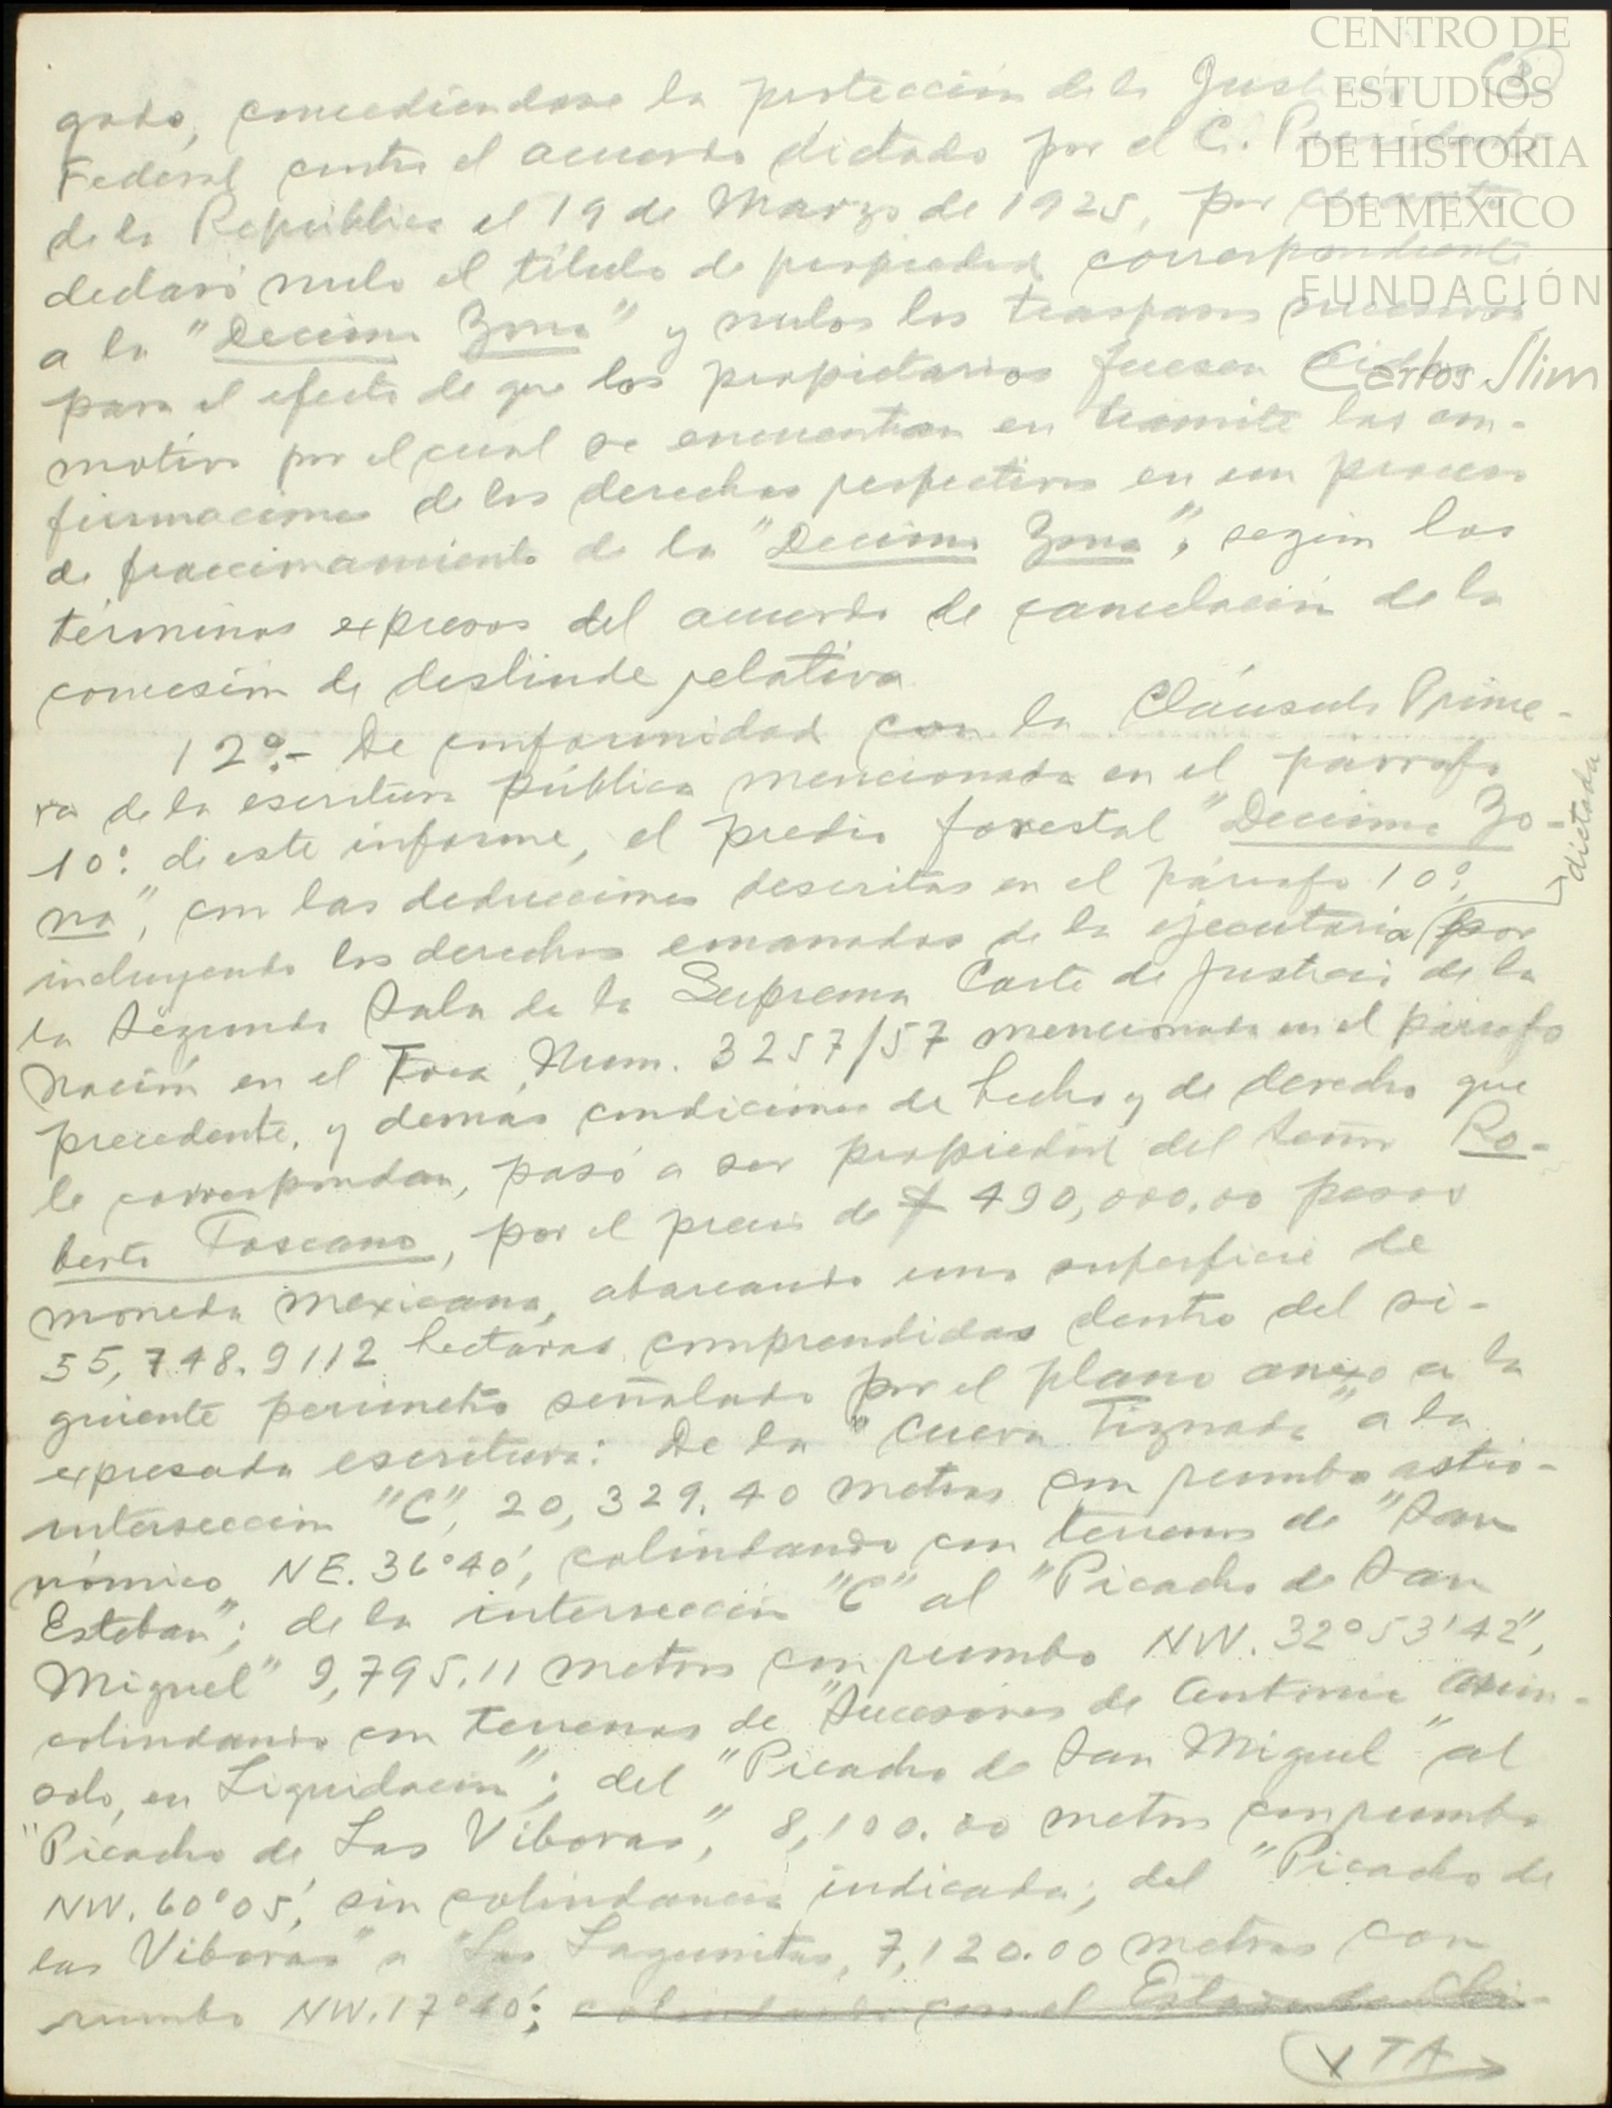 CENTRO DE
ESTUDIOS
DE HISTORIA
DE MÉXICO
FUNDACIÓN
Carlos Slim
gado, concediéndose la protección de la Justicia
Federal contra el acuerdo dictado por el C. Presidente
de la República el 19 de Marzo de 1925, por cuanto
declaró nulo el título de propiedad correspondiente
a la "Decima Zona" y nulos los traspasos sucesivos
para el efecto de que los propietarios fuesen oidos
motivo por el cual se encuentran en trámite las con-
firmaciones de los derechos respectivos en un proceso
de fraccionamiento de la "Decima Zona", según los
términos expresos del acuerdo de cancelación de la
concesión de deslinde relativa
12º.- De conformidad con la Cláusula Prime-
ra de la escritura pública mencionada en el párrafo
10º. de este informe, el predio forestal "Decima Zo-
na", con las deducciones descritas en el párrafo 10º,
dictada
incluyendo los derechos emanados de la ejecutoria por
la Segunda Sala de la Suprema Corte de Justicia de la
Nación en el Toca Num. 3257/57 mencionada en el párrafo
precedente, y demás condiciones de hecho y de derecho que
le correspondan, pasó a ser propiedad del señor Ro-
berto Toscano, por el precio de $ 490,000.00 pesos
moneda mexicana, abarcando una superficie de
55,748.9112 hectaras comprendidas dentro del si-
guiente perimetro señalado por el plano anexo a la
expresada escritura: De la "Cueva Tiznada" a la
intersección "C", 20,329.40 metros con rumbo astro-
nómico NE. 36°40', colindando con terrenos de "San
Esteban"; de la intersección "C" al "Picacho de San
Miguel" 9,795.11 metros con rumbo NW. 32°53'42",
colindando con terrenos de "Sucesores de Antonio Asún-
solo, en Liquidación"; del "Picacho de San Miguel" al
"Picacho de Las Viboras", 8,100.00 metros con rumbo
NW. 60°05', sin colindancia indicada; del "Picacho de
las Viboras" a "Las Lagunitas, 7,120.00 metros con
rumbo NW. 17°40'; colindando con el Estado de Chi-
VTA